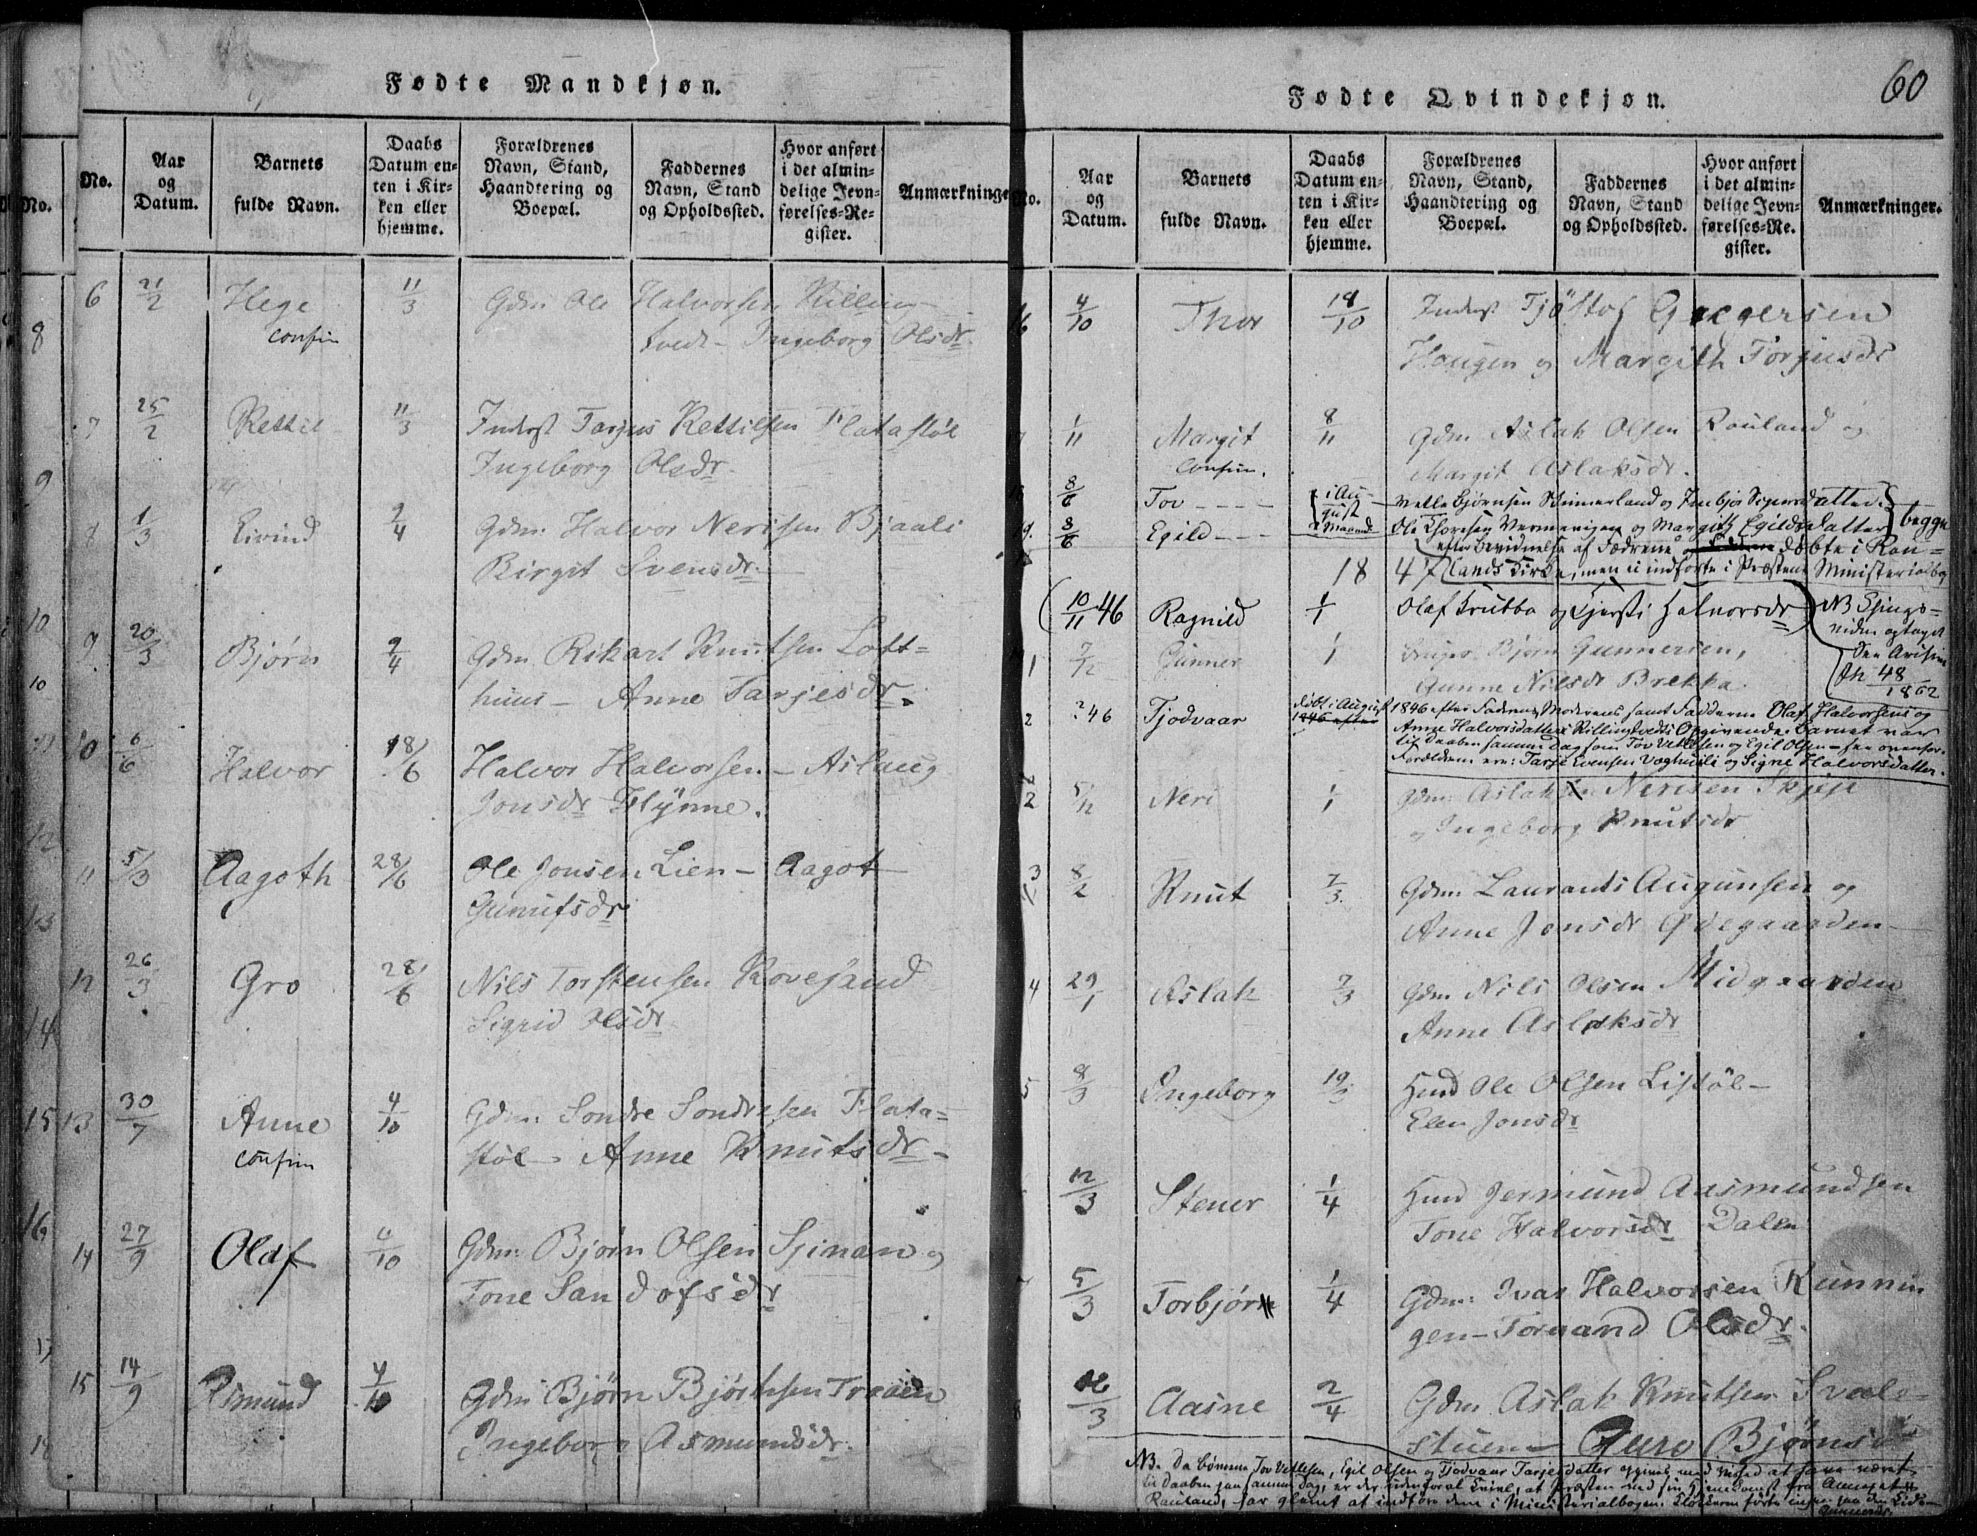 Fødte Mandkjøn.
No.
Aar og Datum.
Barnets fulde Navn.
Daabs Datum enten i Kirken eller hjemme.
Forældrenes Navn, Stand, Haandtering og Boepæl.
Faddernes Navn, Stand og Opholdssted.
Hvor anført i det almindelige Jevnførelses-Register.
Anmærkninge
6 21/2 Hege 11/3 Gdm. Ole Halvorsen Killing-
confirm tvedt - Ingeborg Olsdr.
7 25/2 Kettil 11/3 Inderst Tarjus Kettilsen Flatastøl
Ingeborg Olsdr.
8 1/3 Eivind 2/4 Gdm. Halvor Nerisen Bjaali
Birgit Svensdr.
9 20/3 Bjørn 9/4 Gdm. Rikart Knutsen Loft=
huus - Anne Tarjesdr.
10 6/6 Halvor 18/6 Halvor Halvorsen - Aslaug
Jonsdr Flynne.
11 5/3 Aagoth 28/6 Ole Jonsen Lien - Aagot
Gunufsdr
12 26/3 Gro 28/6 Nils Torstensen Kovejand
Sigrid Olsdr
13 30/7 Anne 4/10 Gdm. Sondre Sondresen Flata=
confirm støl - Anne Knutsdr -
14 27/9 Olaf 4/10 Gdm. Bjørn Olsen Spinan og
Tone Sandofsdr
15 14/9 Asmund 4/10 Gdm Bjørn Bjørnsen Traaen
Ingeborg Asmundsdr.
60
Fødte Qvindekjøn.
No.
Aar og Datum.
Barnets fulde Navn.
Daabs Datum enten i Kirken eller hjemme.
Forældrenes Navn, Stand, Haandtering og Boepæl.
Faddernes Navn, Stand og Opholdssted.
Hvor anført i det almindelige Jevnførelses-Register.
Anmærkninger.
16 4/10 Thor 18/10 Inderst Tjøstof Gregersen
Haugen og Margith Torjusdr
1/11 Margit 8/11 Gdm. Aslak Olsen Rauland og
confirm. Margit Aslaksdr.
8/6 Tov - - - - i Au- Vetle Bjørnsen datter
19. 8/6 Egild - - - gust Ole Thoresen og Margith Egildsdatter begge
efter Bevidnelse af Fædrene døbte i Rau=
1847 lands Kirke, men ei indførte i Præstens Ministerialbog
(10/11 46 Ragnild 1/1 Olaf Krubba og Gjersti Halvorsdr) NB
1 7/12 Gunner 1/1 Bjørn Gunnersen,
Aunne Nilsdr Brekka. 48/1862
2 ? 46 Tjodvaar døbt i August 1846 efter Faderens, Moderens samt Faddernes Olaf Halvorsens og
1846 efter Anne Halvorsdatters Killingtvedts Opgivende. Barnet var
til Daaben samme Dag som Tov Vetlesen og Egil Olsen - see ovenfor.
Forældrene ere: Tarje Evensen Vaghusli og Signe Halvorsdatter.
2 5/12 Neri 1/1 Gdm. Aslak Nerisen Skjeje
og Ingeborg Knutsdr
3 8/2 Knut 7/3 Gdm: Laurants Augunsen og
Anne Jonsdr Ødegaarden -
4 29/1 Aslak 7/3 Gdm. Nils Olsen Midgaarden
Anne Aslaksdr
5 8/3 Ingeborg 19/3 Huusmd Ole Olsen Listøl -
Elen Jonsdr
12/3 Stener 1/4 Jermund Aasmundsen
Tone Halvorsdr Dalen
5/3 Torbjørn 1/4 Gdm: Ivar Halvorsen Runnin
gen - Torgand Olsdr.
/3 Aasne 2/4 Gdm Aslak Knutsen Svale-
stuen - Guro Bjørnsdr
NB. Da børnene Tov Vetlesen, Egil Olsen og Tjodvaar Tarjesdatter opgives med Vished at have været
til Daaben paa samme Dag, er der at Præsten ved sin Hjemkomst fra
Rauland, har glemt at indføre dem i Ministerialbogen.